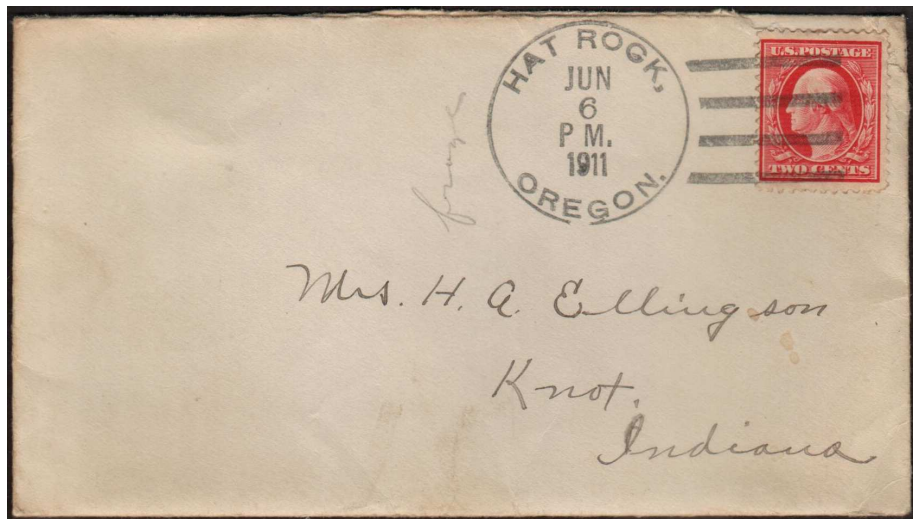 HAT ROCK,
JUN
6
P M.
1911
OREGON.
U.S. POSTAGE
TWO CENTS
Mrs. H. A. Ellingson
Knot.
Indiana